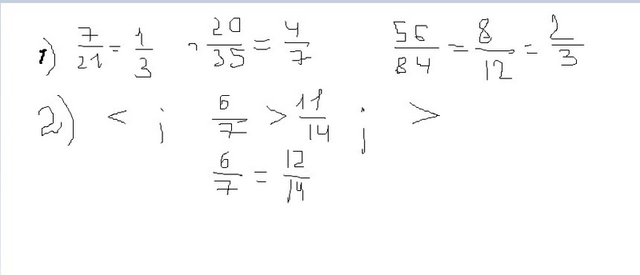 1) 7/21 = 1/3 , 20/35 = 4/7 56/84 = 8/12 = 2/3
2) < ; 6/7 > 11/14 ; >
6/7 = 12/14